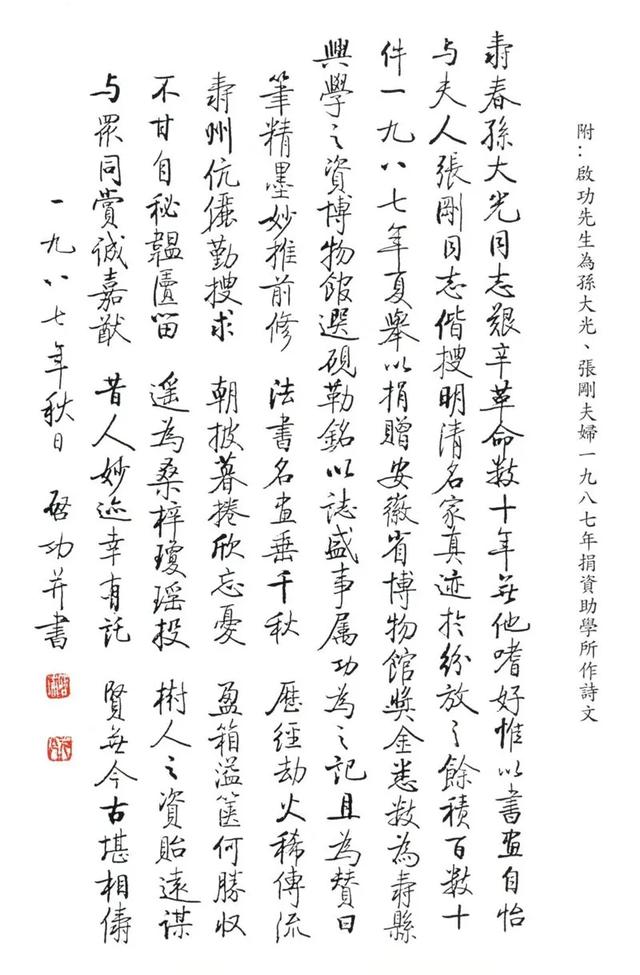 附：啟功先生為孫大光、張剛夫婦一九八七年捐資助學所作詩文
壽春孫大光同志艱辛革命数十年無他嗜好惟以書画自怡
与夫人張剛同志偕搜明清名家真迹於紛放之餘積百数十
件一九八七年夏舉以捐贈安徽省博物館獎金悉数為壽縣
興學之資博物館選硯勒銘以誌盛事属功為之記且為贊曰
筆精墨妙推前修 法書名画垂千秋 歷經劫火稀傳流
壽州伉儷勤搜求 朝披暮捲欣忘憂 盈箱溢篋何勝収
不甘自秘韞匵留 遥為桑梓瓊瑶投 樹人之資貽遠謀
与眾同賞誠嘉猷 昔人妙迹幸有託 賢無今古堪相儔
一九八七年秋日 啓功并書